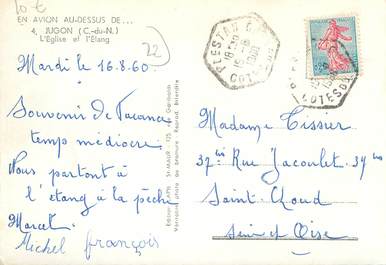 10 €
EN AVION AU-DESSUS DE...
4. JUGON (C.-du-N.)
L'Eglise et l'Etang
22
Mardi le 16.8.60
Souvenir de Vacances
temps médiocre.
Nous partont à
l'étang à la pêche
Marcel
Michel françois
PLESTAN
1960
COTES DU
COTES DU
Madame Tissier
37 bis Rue Jacoulet 37 bis
Saint-Cloud
Seine et Oise